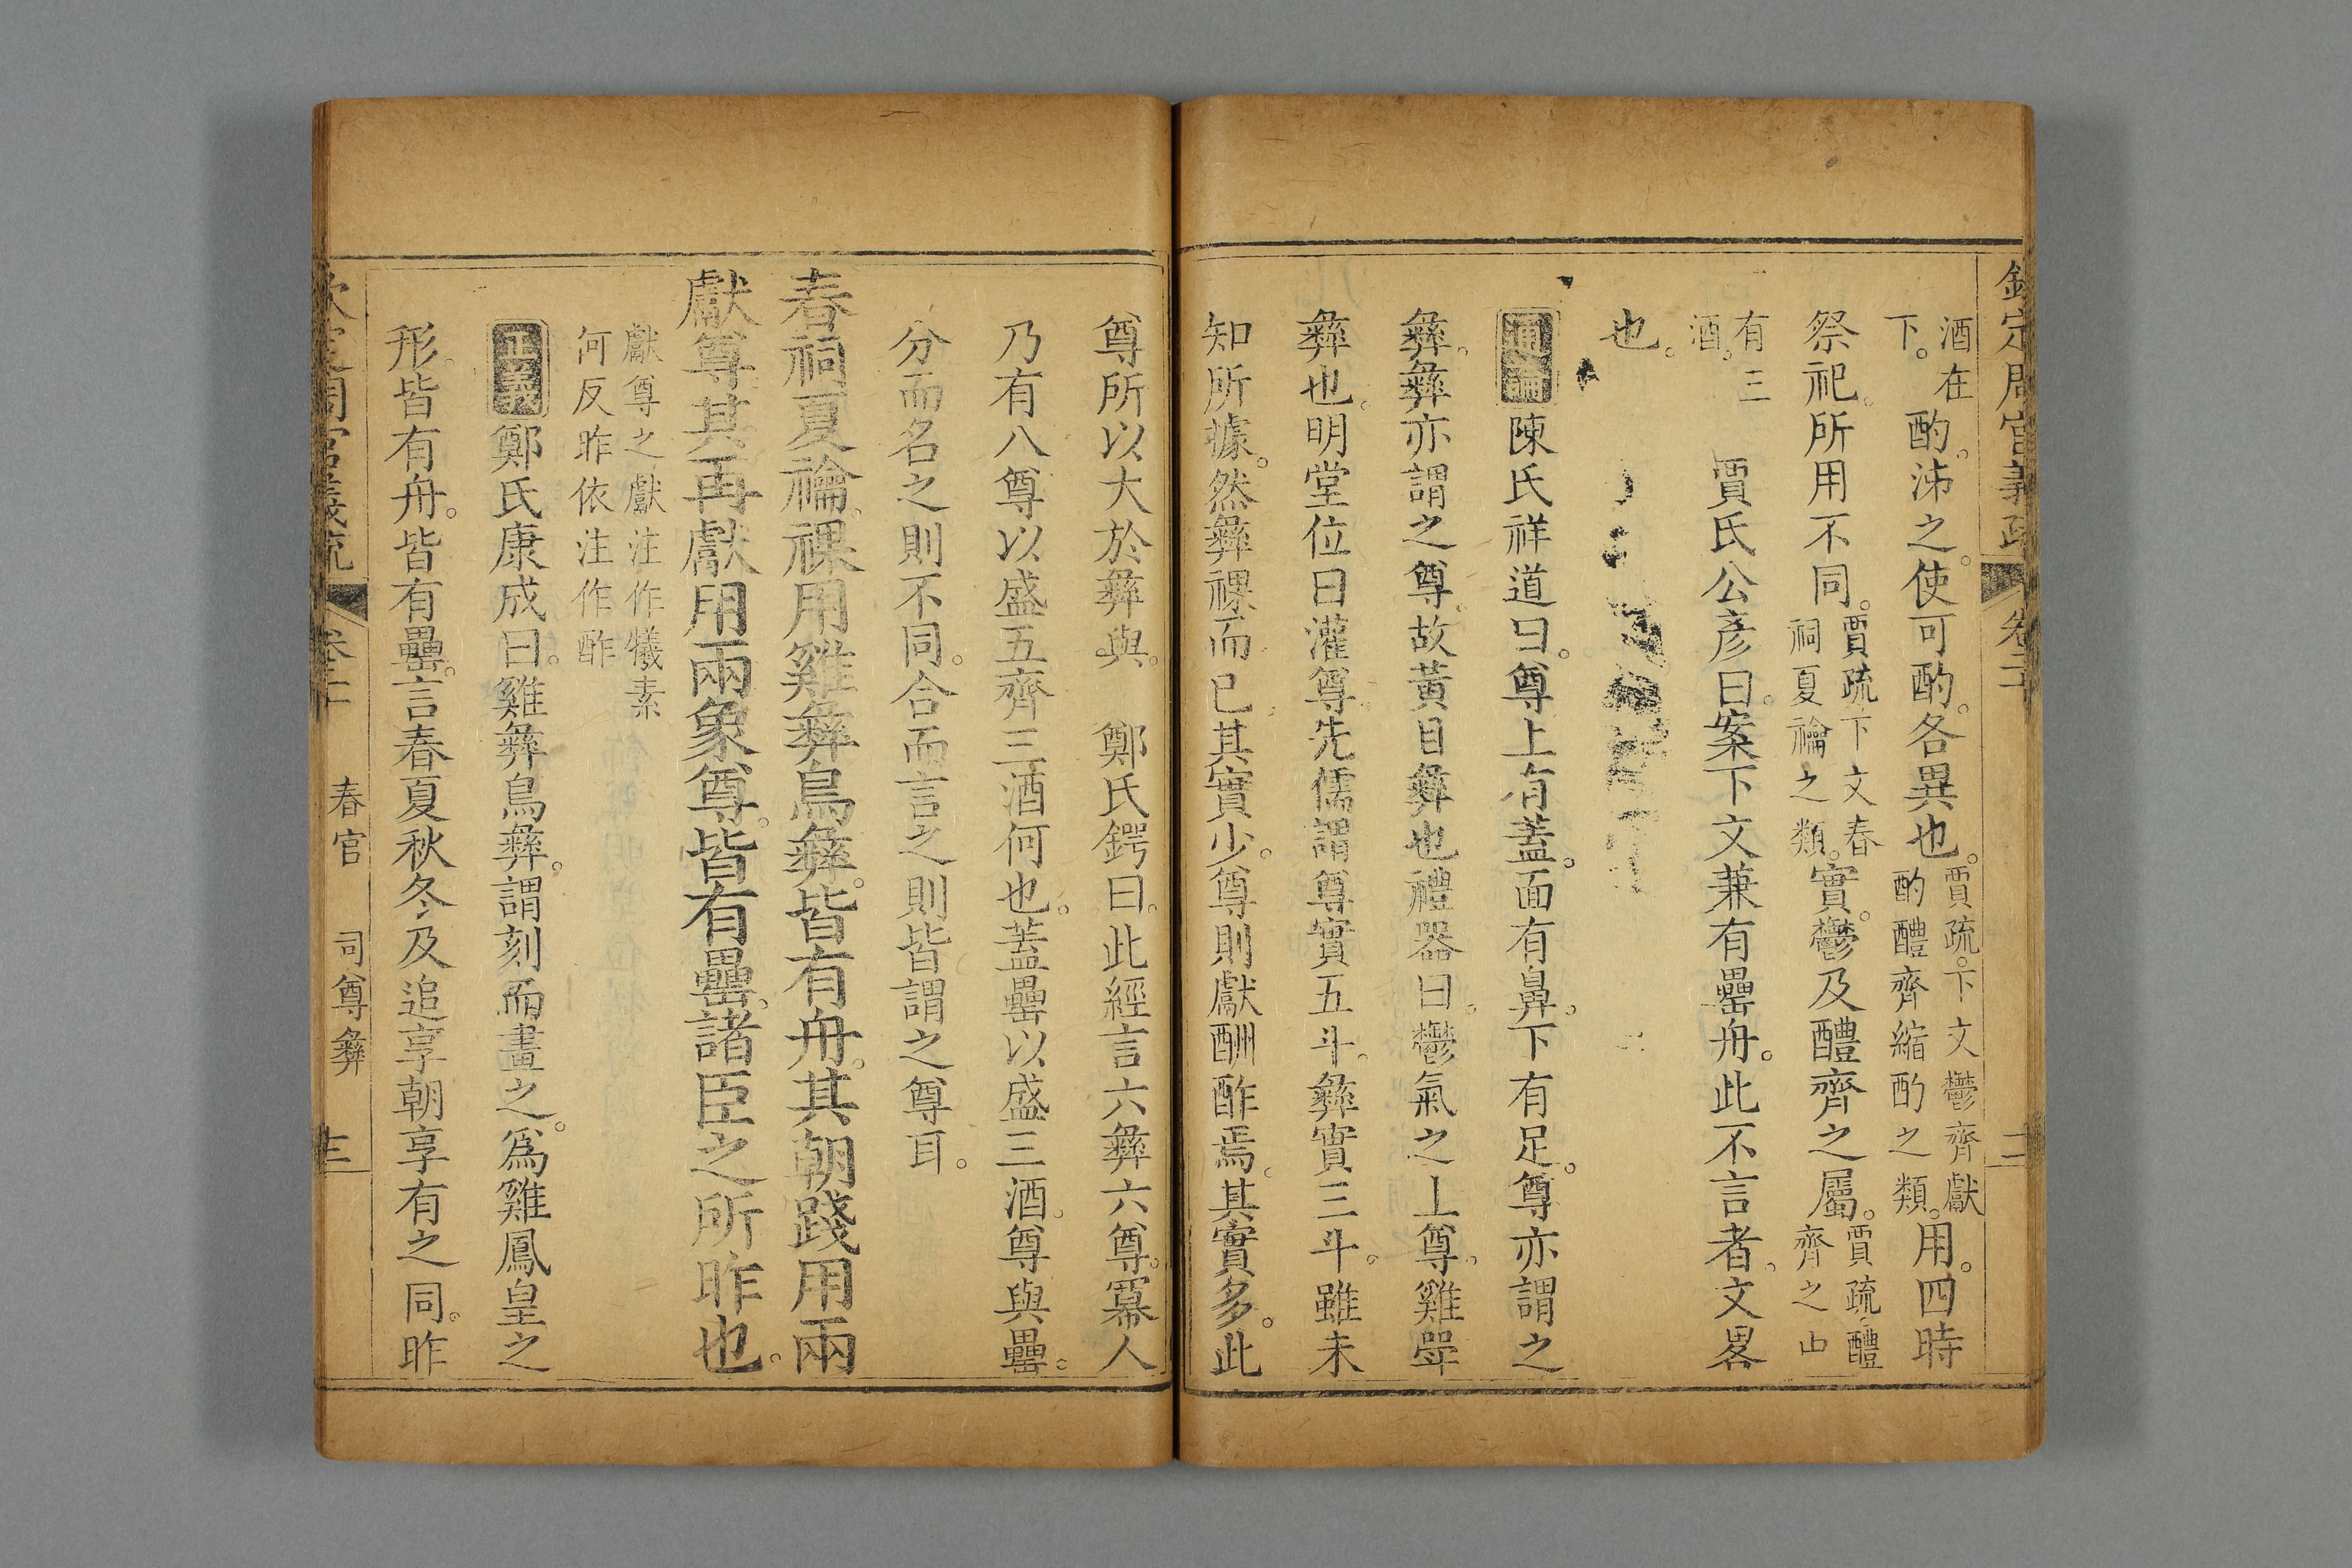 欽定周官義疏 卷二十
酒在下。酌。泲之。使可酌。各異也。賈疏。下文鬱齊獻酌醴齊縮酌之類。用。四時
祭祀。所用不同。賈疏下文春祠夏禴之類。實。鬱及醴齊之屬。賈疏醴齊之中
有三酒。 賈氏公彥曰。案下文兼有罍舟。此不言者。文畧
也。
通論陳氏祥道曰。尊上有蓋。面有鼻。下有足。尊亦謂之
彝。彝亦謂之尊。故黃目彝也禮器曰。鬱氣之上尊。雞斝
彝也。明堂位曰灌尊。先儒謂尊實五斗。彝實三斗。雖未
知所據。然彝祼而已。其實少。尊則獻酬酢焉。其實多。此
尊所以大於彝與。 鄭氏鍔曰。此經言六彝六尊。冪人
乃有八尊以盛五齊三酒何也。蓋罍以盛三酒。尊與罍。
分而名之則不同。合而言之則皆謂之尊耳。
春祠夏禴。祼用雞彝鳥彝。皆有舟。其朝踐用兩
獻尊其再獻用兩象尊。皆有罍。諸臣之所昨也。
獻尊之獻注作犧素
何反昨依注作酢
正義鄭氏康成曰。雞彝鳥彝。謂刻而畫之。爲雞鳳皇之
形。皆有舟。皆有罍。言春夏秋冬及追享朝享有之同。昨
欽定周官義疏 卷二十 春官 司尊彝